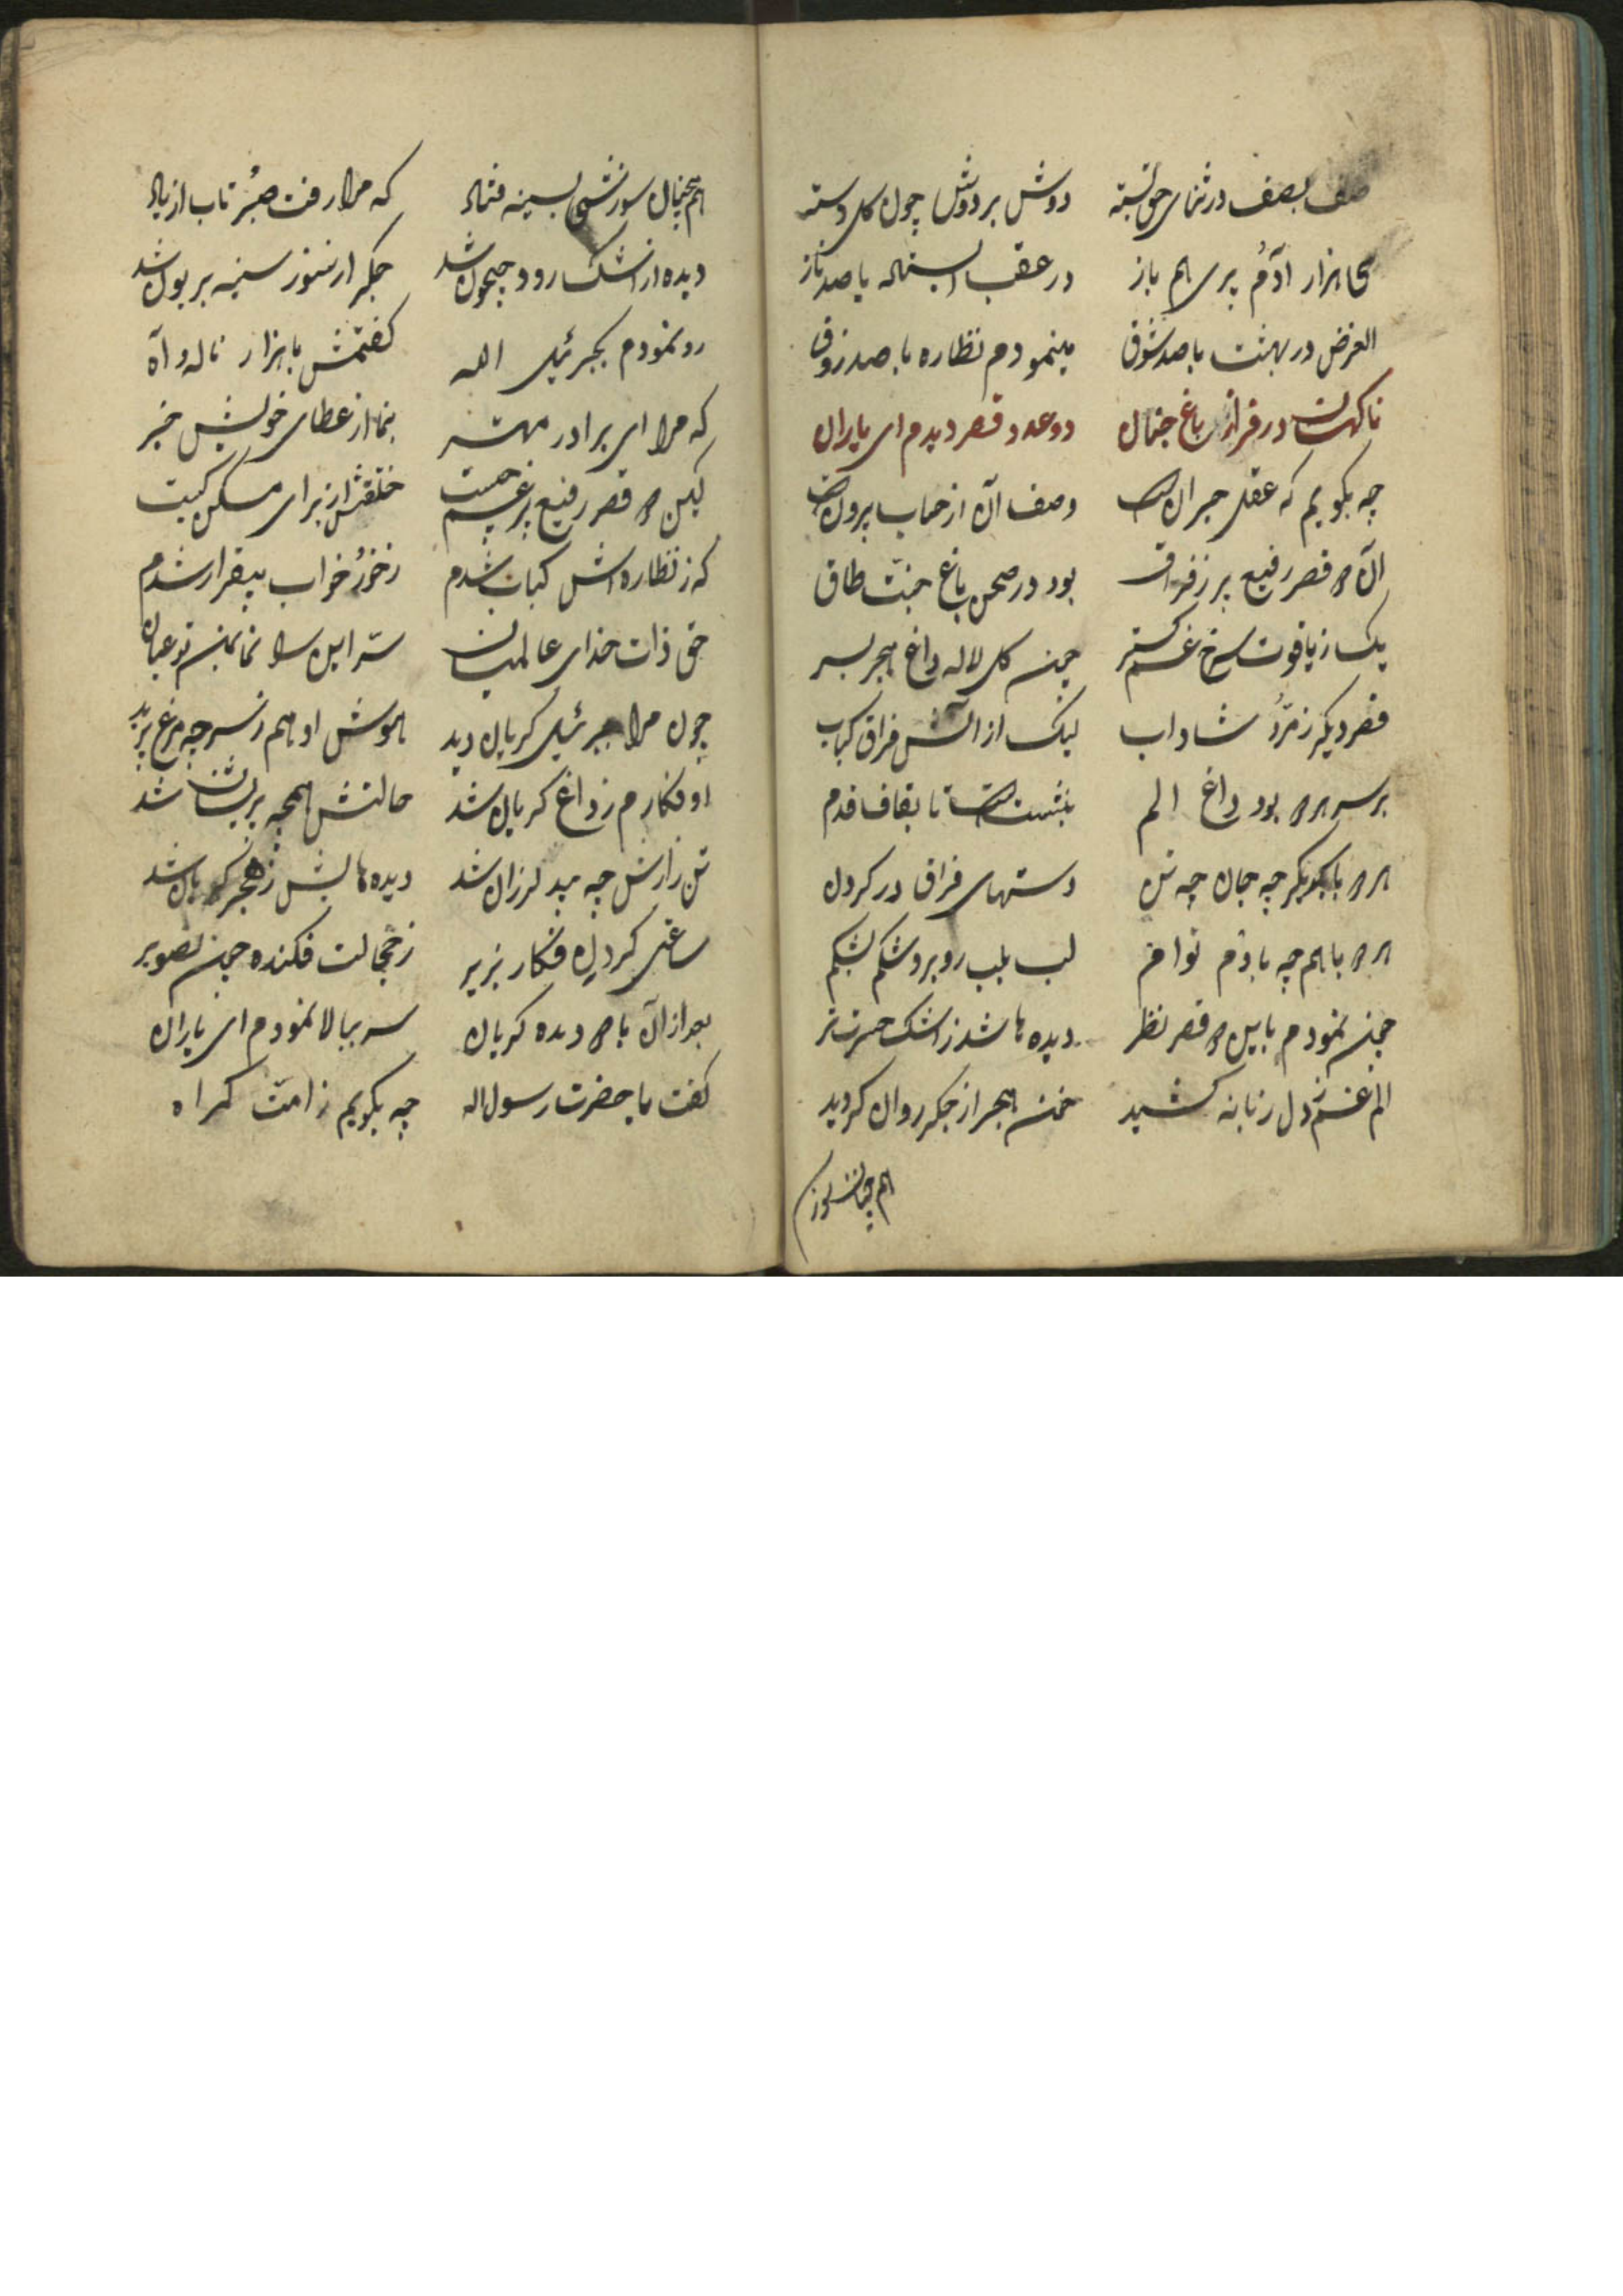 صف بصف در ثنای حق بسته دوش بر دوش چون کل دسته
هزار آدم پری هم باز در عقب استهاله با صد ناز
الغرض در بهشت با صد شوق مینمودم نظاره با صد زوق
ناکهان در فراز باغ جنان دو عدد قصر دیدم ای یاران
چه بکویم که عقل حیران است وصف آن از حساب بیرون است
آن دو قصر رفیع پر ز فراق بود در صحن باغ جنت طاق
یک ز یاقوت سرخ غم کستر چون کل لاله داغ هجر بسر
قصر دیکر زمرد شاداب لیک از آتش فراق کباب
بر سر هر دو بود داغ الم تا بقاف قدم
هر دو با یکدیکر چه جان چه تن دستهای فراق در کردن
هر دو با هم چه با توام لب بلب رو برو شکم بشکم
چون نمودم باین دو قصر نظر دیده ها شد ز اشک حسرت تر
الم غم ز دل زبانه کشید خون هجر از جکر روان کردید
هم چنان سوز
هم چنان سوزشی بسینه فتاد که مرا رفت صبر تاب از یاد
دیده از اشک رود جیحون شد جکر از سوز سینه بریون شد
رو نمودم بجبرئیل الله کفتمش با هزار ناله و آه
که مرا ای برادر مهتر بنما از عطای خویش خبر
این دو قصر رفیع پر غم چیست خلقتش از برای مسکن کیست
که ز نظاره اش کباب شدم ز خور خواب بیقرار شدم
حق ذات خدای عالمیان ستر این را نما بمن تو عیان
چون مرا جبرئیل کریان دید هوش او هم ز سر چه مرغ پرید
او فکارم ز داغ کریان شد حالتش همچه پریشان شد
تن زارش چه بید لرزان شد دیده هایش ز هجر کریان شد
ساعتی کرد فکار بزیر ز خجالت فکنده چون تصویر
بعد از آن با دو دیده کریان سر ببالا نمودم ای یاران
کفت یا حضرت رسول اله چه بکویم ز امت کمراه